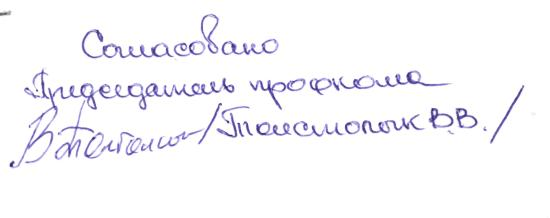 Согласовано
Председатель профкома
/Толстопятык В.В./